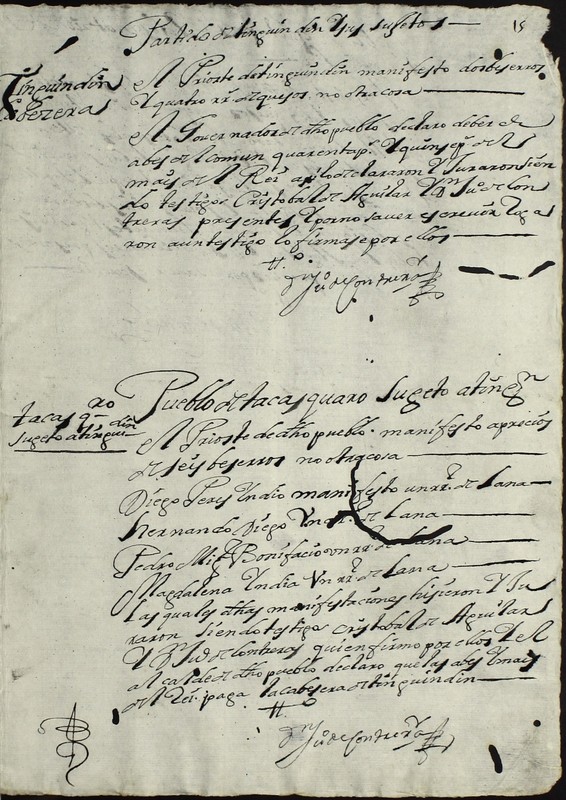 Partido de tinguindin y sus sugetos
15
Tinguindin
Cabezera
el Prioste de tinguindin manifesto dos beserros
y quatro rr.s de quesos no otra cosa
el Governador de dho pueblo declaro deber de
abes de l comun quarenta p.s y quinse p.s de el
mais de el Rei asi lo declararon y juraron sien
do testigos Cristobal de Aguilar y Dn Ju.o de Con
treras presentes y por no saver escrevir Roga
ron a un testigo lo firmase por ellos
Dn Ju.o de Contreras
tacasquaro
sugeto a tingui-
din
Pueblo de tacasquaro sugeto a ting.n
el Prioste de dho pueblo manifesto
de seys beserros no otra cosa
Diego Peres Yndio manifesto un rr.o de lana
hernando Diego Un rr.o de lana
Pedro Mig.l Bonifacio un rr.o de lana
Magdalena Yndia Un rr.o de lana
las quales dhas manifestaciones hisieron y ju
raron siendo testigos Cristobal de Aguilar
y D Ju.o de Contreras quien firmo por ellos y el
alcalde de dho pueblo declaro que las abes y mais
de el Rei paga la cabesera de tinguindin
Dn Ju.o de Contreras